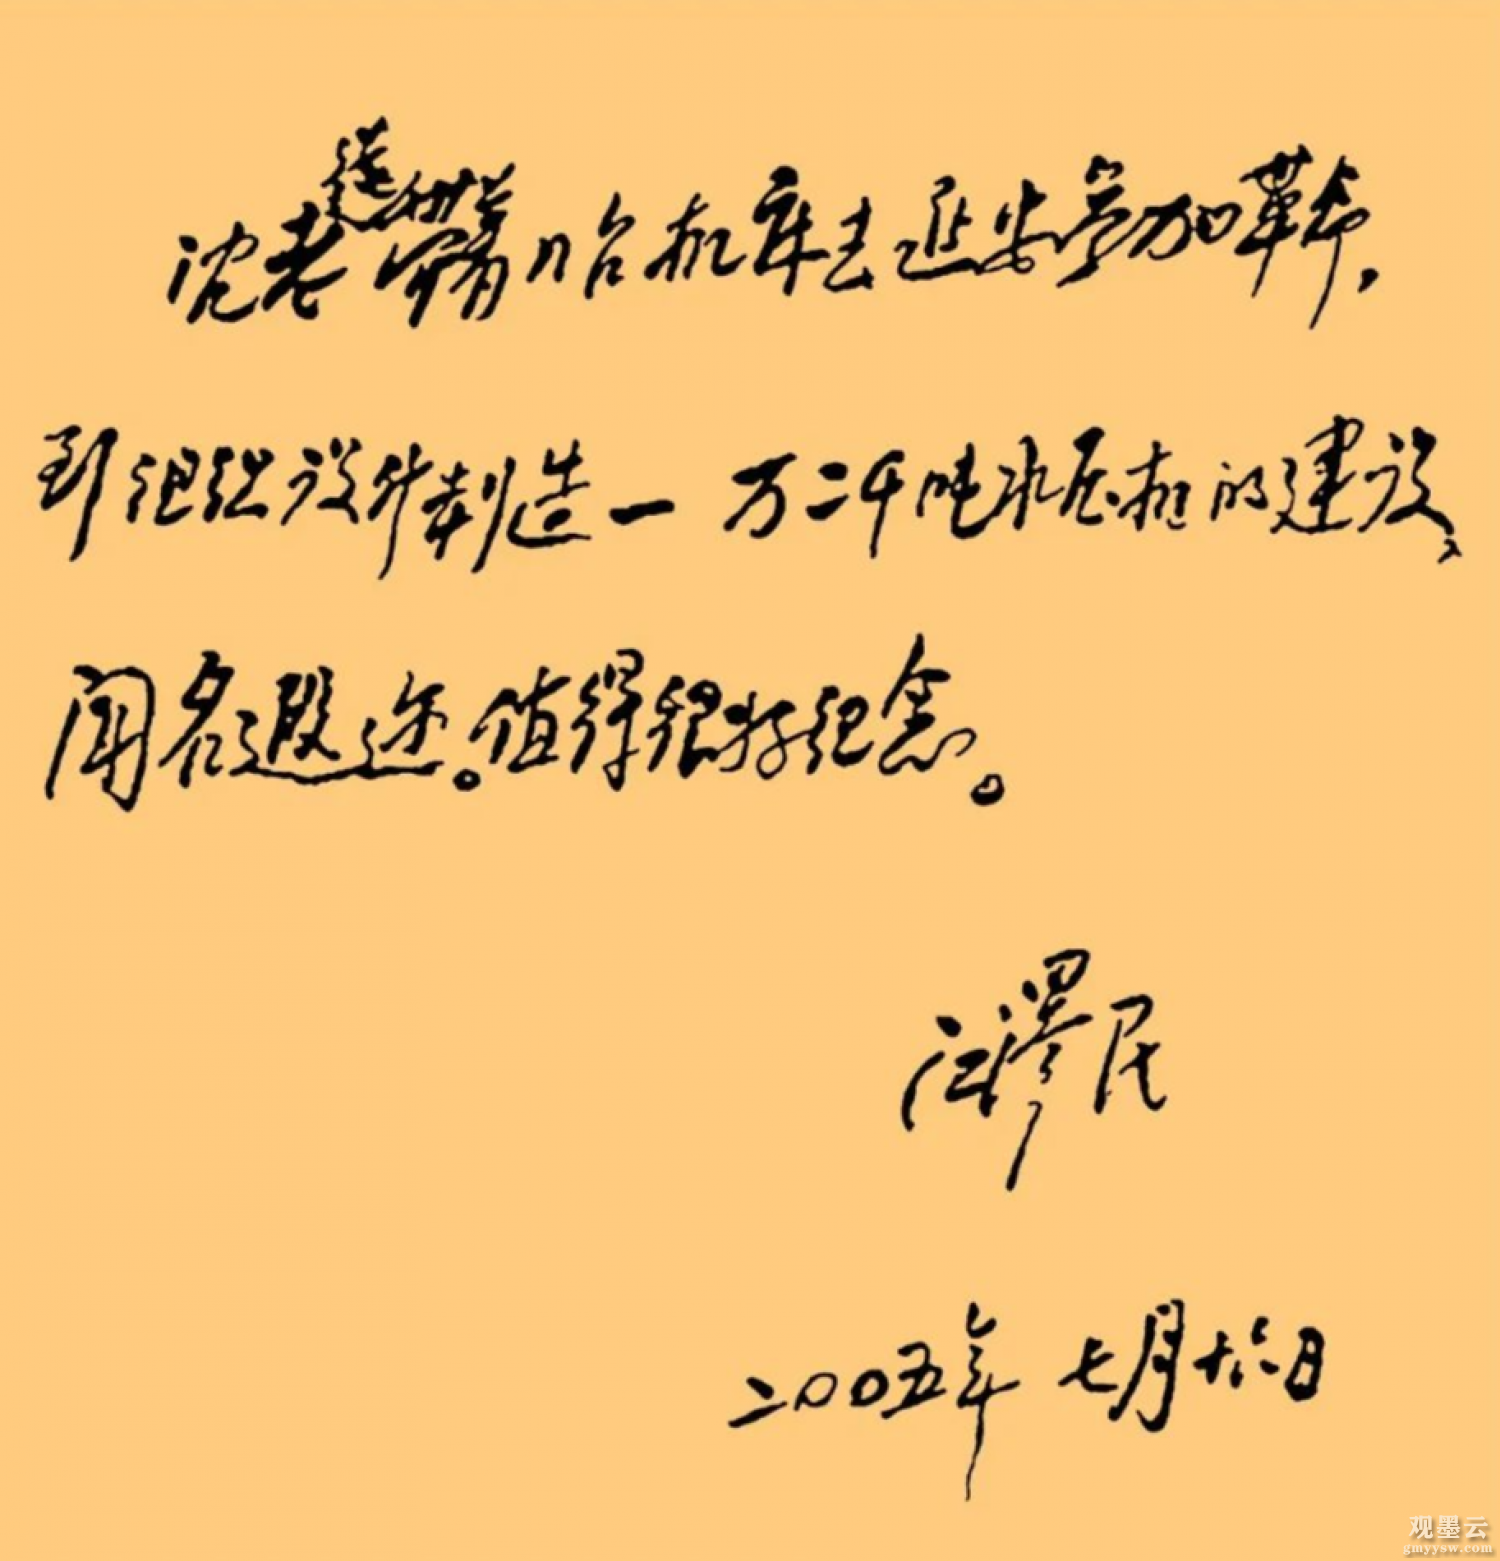 沈老從带着几台机床去延安参加革命，
到组织设计制造一万二千吨水压机的建设、
闻名遐迩。值得很好纪念。
江泽民
二00五年七月十六日
观墨云
gmyysw.com